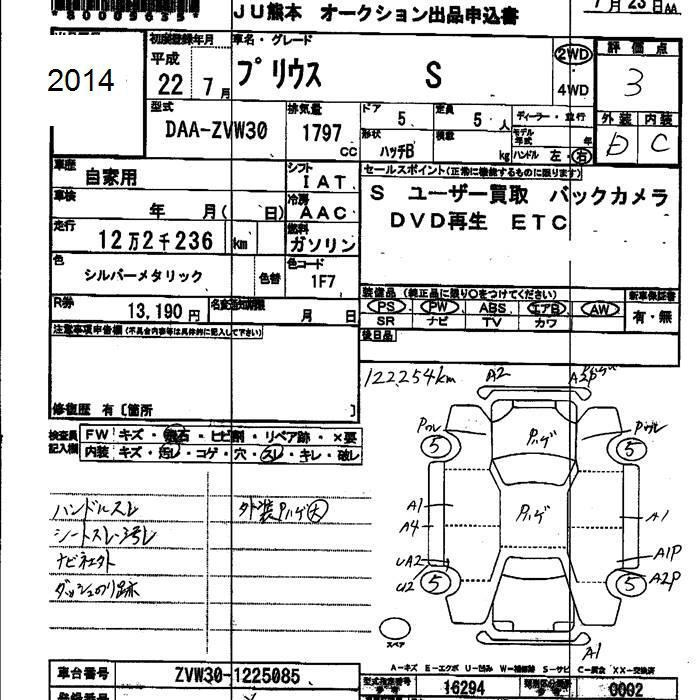 *80009635*
JU熊本 オークション出品申込書
7月23日AA
2014
初度登録年月
平成
22 7月
車名・グレード
プリウス S
2WD
4WD
評価点
3
外装 内装
D C
型式
DAA-ZVW30
排気量
1797
CC
ドア 5
定員 5人
形状 ハッチB
積載 kg
ディーラー・並行
モデル年式 年
ハンドル 左・右
車歴
自家用
シフト
IAT
車検
年 月( 日)
冷房
AAC
走行
12万2千236 km
燃料
ガソリン
色
シルバーメタリック
色替
色コード
1F7
R券
13,190円
名変通知期限
月 日
セールスポイント(正常に機能するものに限ります)
S ユーザー買取 バックカメラ
DVD再生 ETC
装備品(純正品に限り○をつけてください)
新車保証書
PS PW ABS エアB AW
SR ナビ TV カワ
有・無
後日品
注意事項申告欄(不具合内容等は具体的に記入して下さい)
修復歴 有〔箇所 〕
122254km
検査員
記入欄
FW キズ・飛石・ヒビ割・リペア跡・×要
内装 キズ・汚レ・コゲ・穴・スレ・キレ・破レ
ハンドルスレ
外装Pハゲ大
シートスレ・汚レ
ダッシュのり跡
A2
Pハゲ
5
5
Pハゲ
A1
A4
A1
UA2
U2
A1P
A2P
5
5
スペア
A1
A-キズ E-エクボ U-凹み W-補修跡 S-サビ C-腐食 XX-交換済
車台番号
ZVW30-1225085
型式指定番号
16294
類別区分番号
0002
登録番号